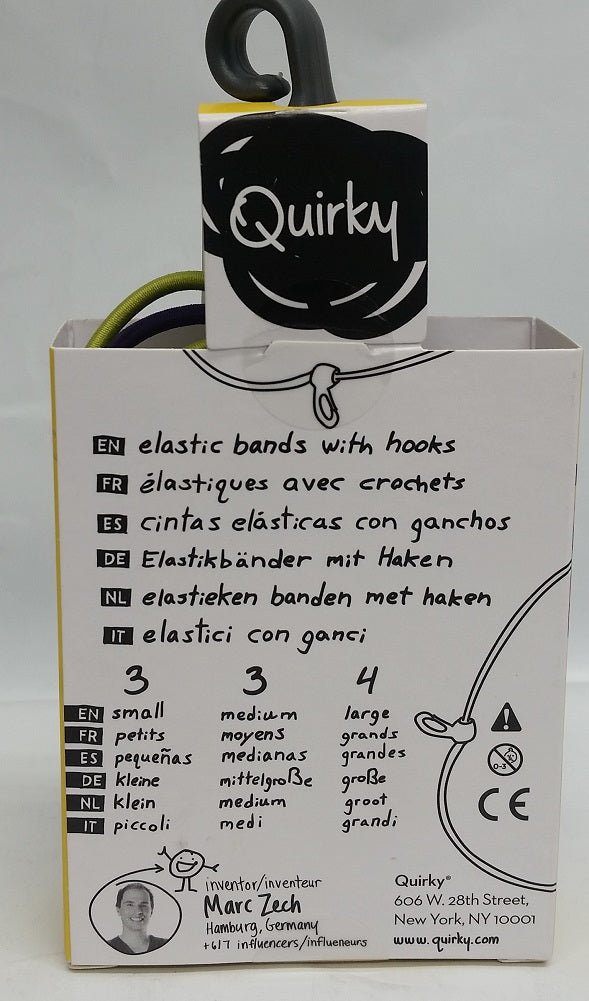 Quirky
EN elastic bands with hooks
FR élastiques avec crochets
ES cintas elásticas con ganchos
DE Elastikbänder mit Haken
NL elastieken banden met haken
IT elastici con ganci
3 3 4
EN small medium large
FR petits moyens grands
ES pequeñas medianas grandes
DE kleine mittelgroße große
NL klein medium groot
IT piccoli medi grandi
0-3
CE
inventor/inventeur
Marc Zech
Hamburg, Germany
+617 influencers/influeneurs
Quirky®
606 W. 28th Street,
New York, NY 10001
www.quirky.com